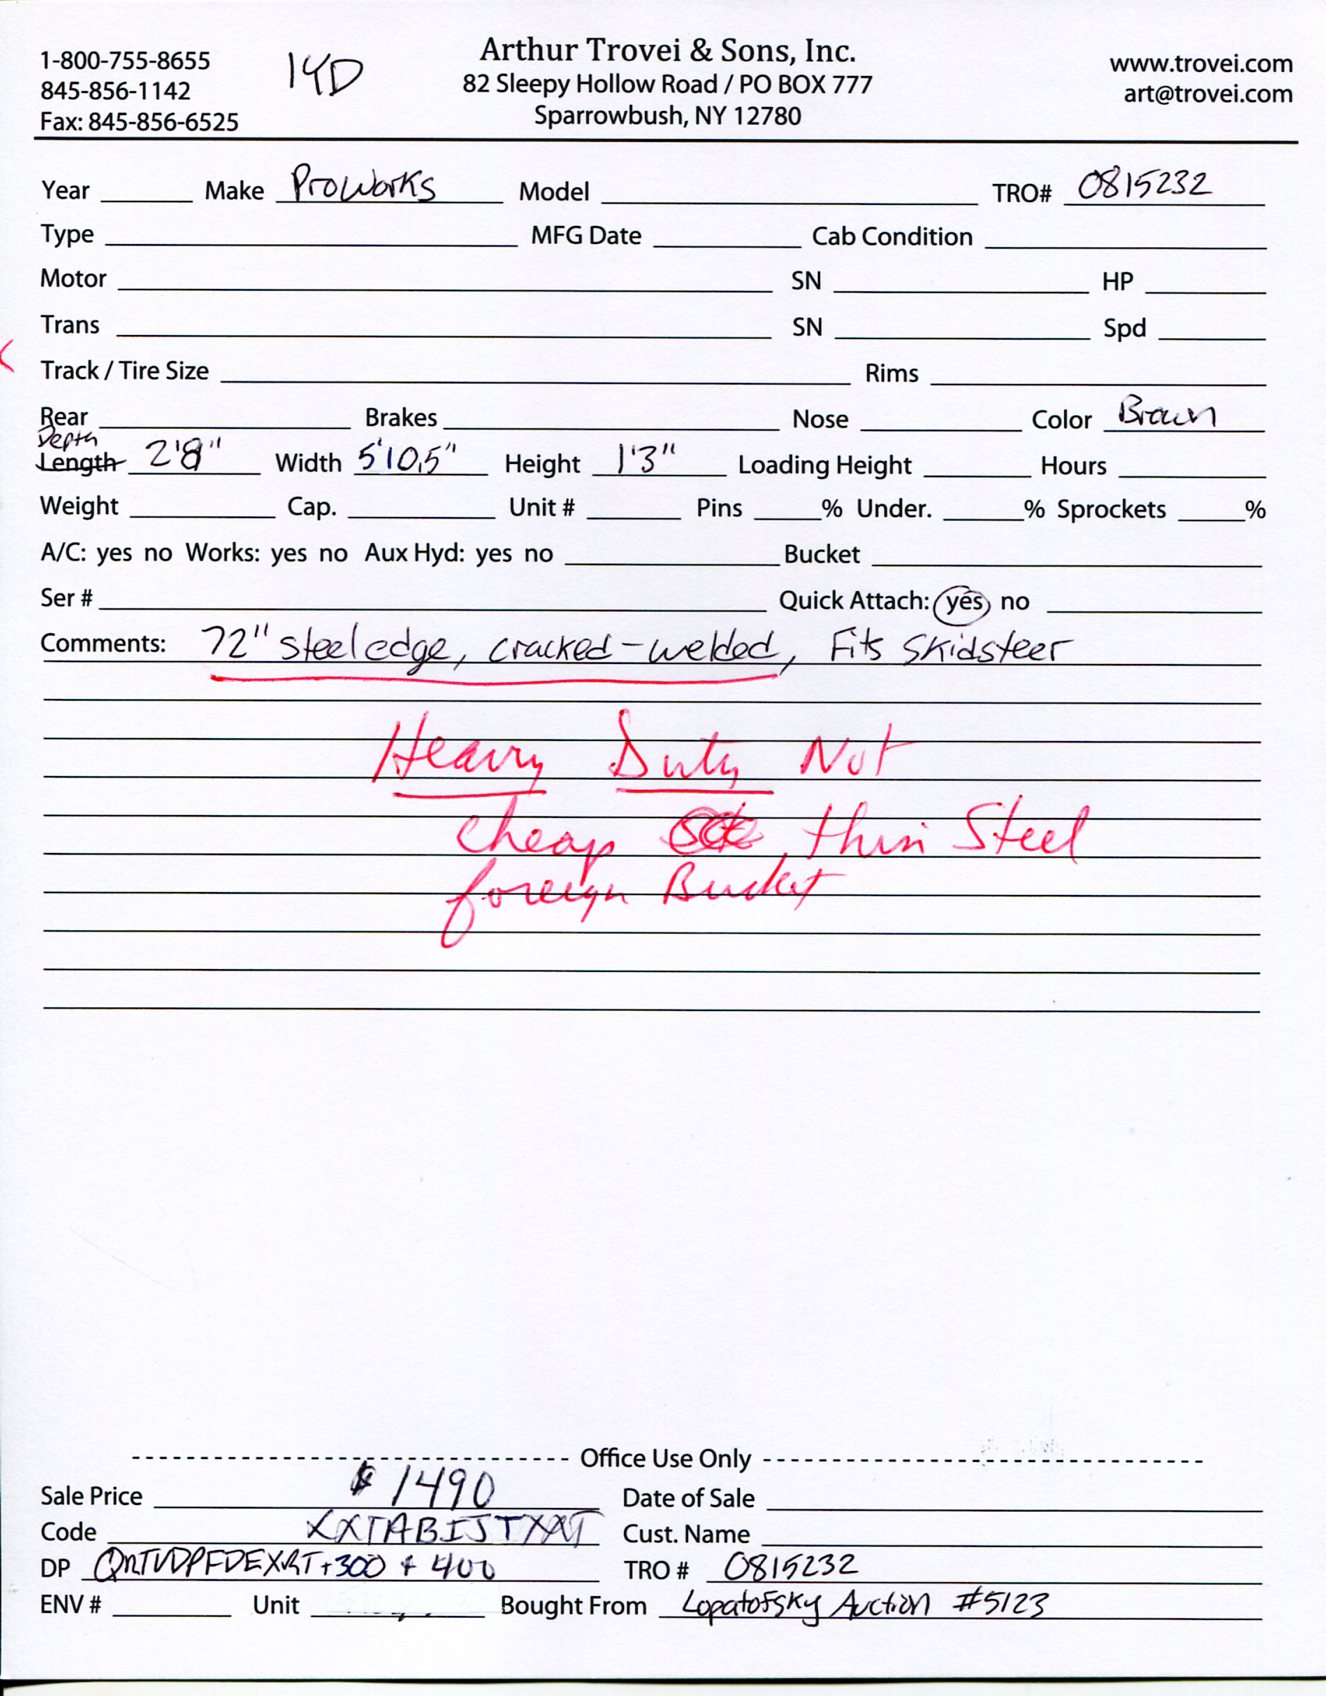 1-800-755-8655
845-856-1142
Fax: 845-856-6525
14D
Arthur Trovei & Sons, Inc.
82 Sleepy Hollow Road / PO BOX 777
Sparrowbush, NY 12780
www.trovei.com
art@trovei.com
Year Make ProWorks Model TRO# 0815232
Type MFG Date Cab Condition
Motor SN HP
Trans SN Spd
Track / Tire Size Rims
Rear Brakes Nose Color Brown
Depth
Length 2'8" Width 5'10.5" Height 1'3" Loading Height Hours
Weight Cap. Unit # Pins % Under. % Sprockets %
A/C: yes no Works: yes no Aux Hyd: yes no Bucket
Ser # Quick Attach: yes no
Comments: 72" steel edge, cracked-welded, Fits Skidsteer
Heavy Duty Not
cheap, thin Steel
foreign Bucket
Office Use Only
Sale Price $1490 Date of Sale
Code XXTABISTXXT Cust. Name
DP +300 + 400 TRO # 0815232
ENV # Unit Bought From Lopatofsky Auction #5123